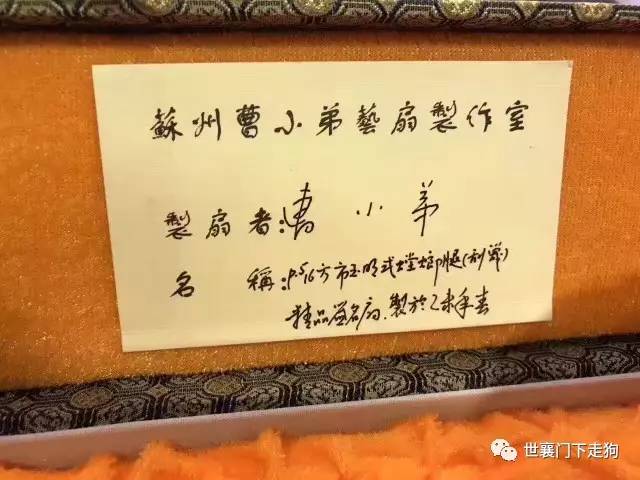 蘇州曹小弟藝扇製作室
製扇者:曹小弟
名稱:9.5 16方 明式螳螂腿
精品签名扇.製於乙未年春
世襄门下走狗